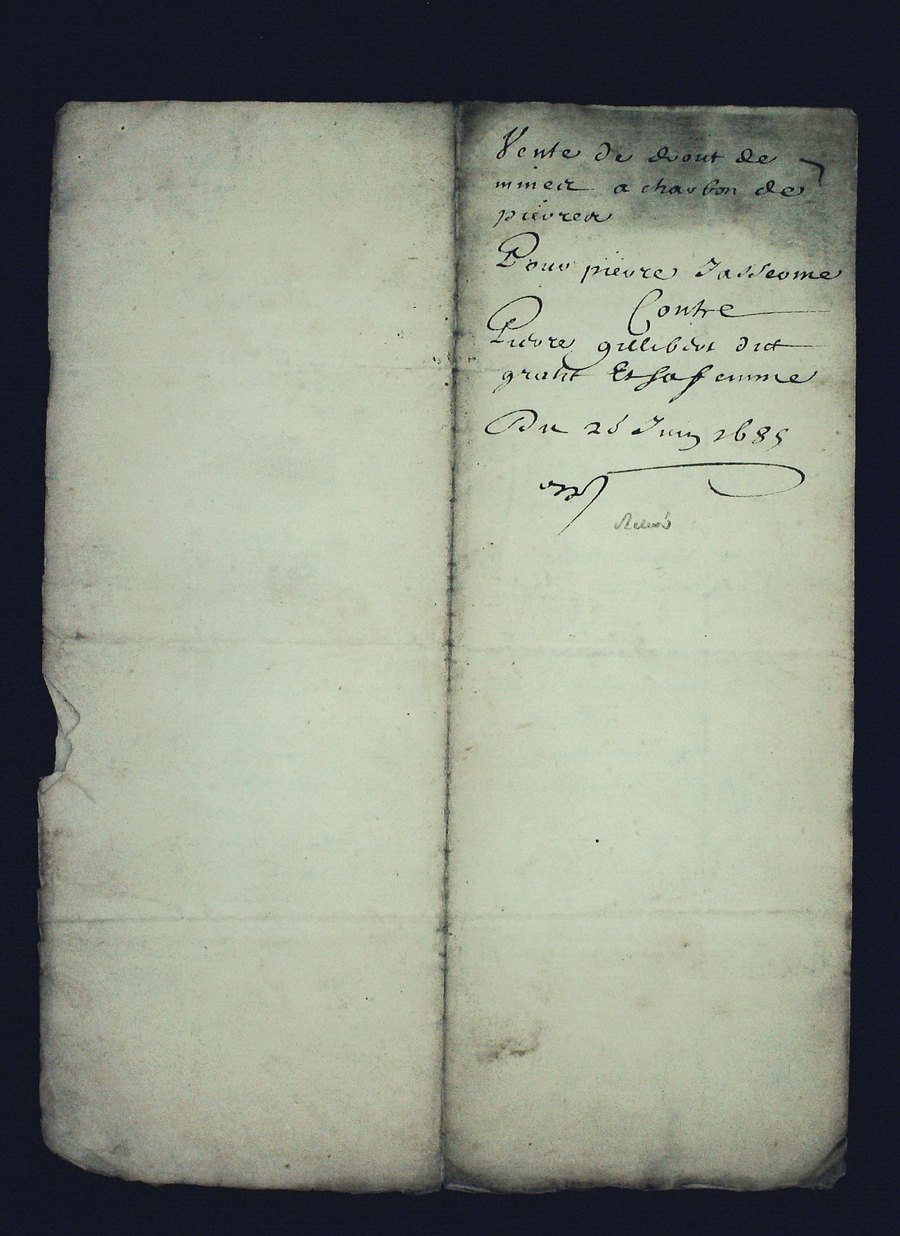 Vente de droit de
mines a charbon de
pierres
Pour pierre Jasseome
Contre
Pierre gillibert dict
grand Et sa femme
Du 25 Juin 1685